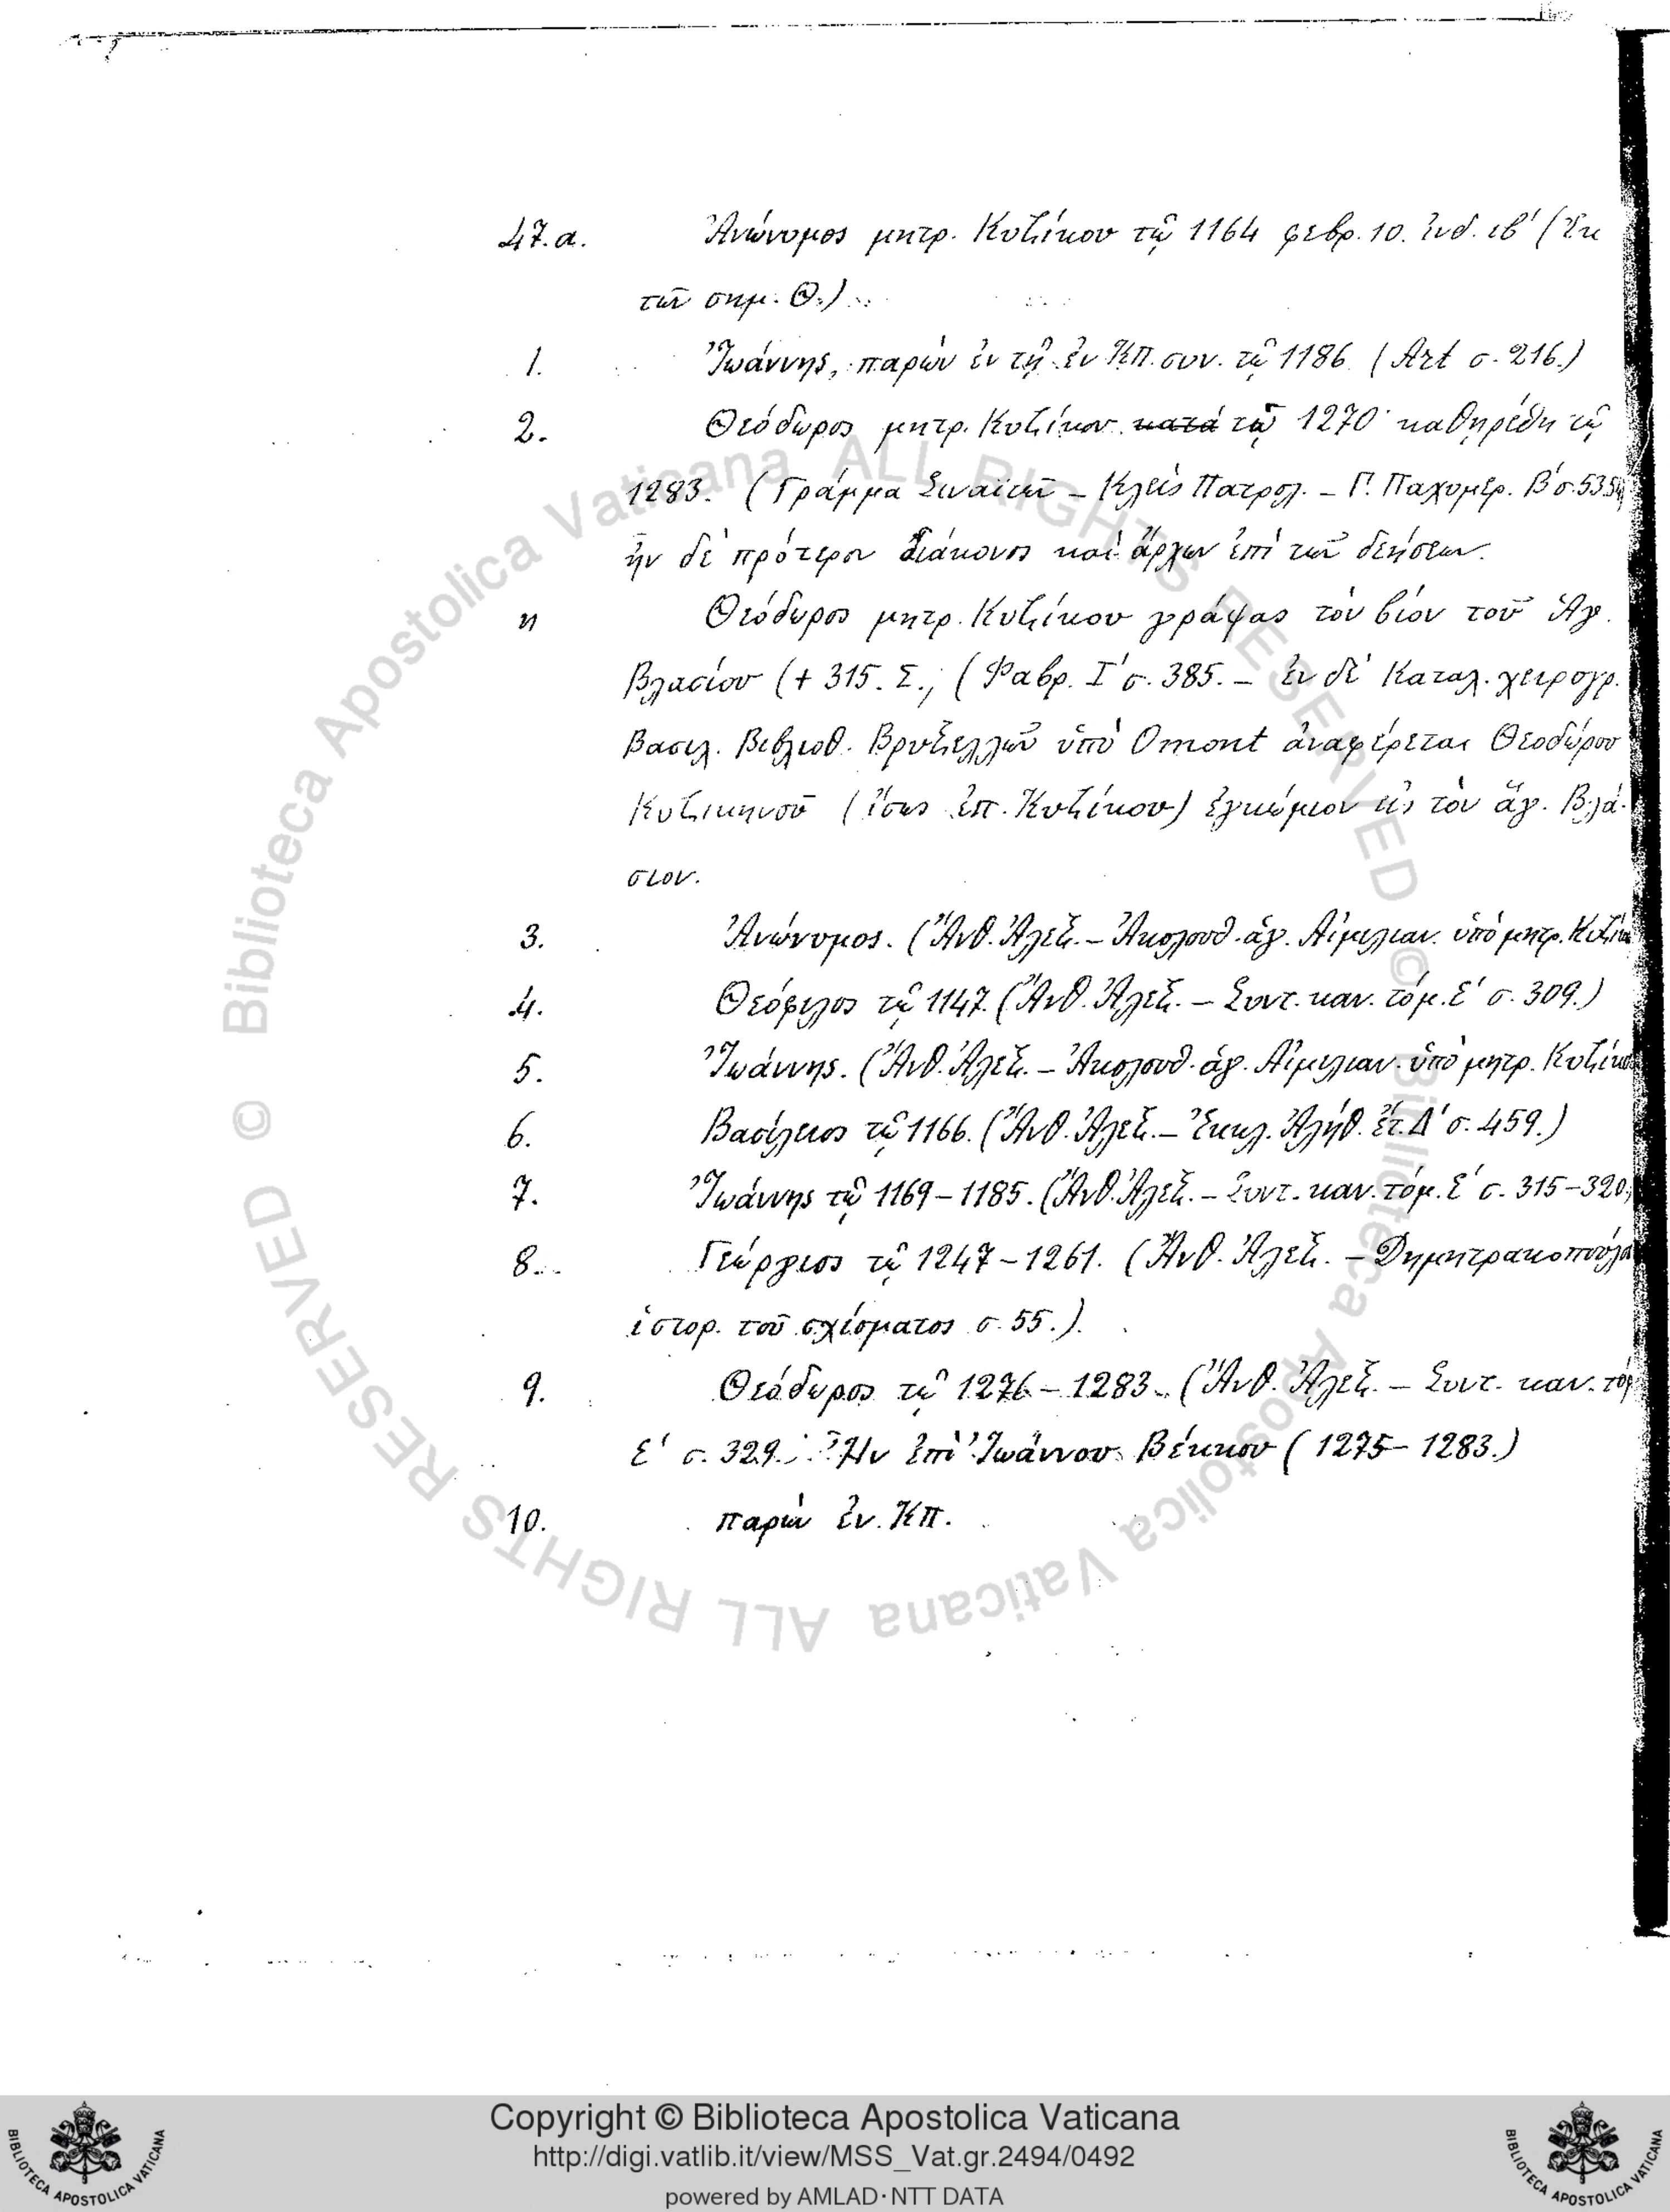 47.α. Ἀνώνυμος μητρ. Κυζίκου τῷ 1164 φεβρ. 10. ἰνδ. ιβ΄ (Ἐκ
τῶν σημ. Θ.)
1. Ἰωάννης, παρὼν ἐν τῇ ἐν ΚΠ. συν. τῷ 1186 (Art σ. 216.)
2. Θεόδωρος μητρ. Κυζίκου κατὰ τῷ 1270 καθηρέθη τῷ
1283. (Γράμμα Σιναϊτῶν – Κλεὶς Πατρολ. – Γ. Παχυμέρ. Β΄ σ. 535
ἦν δὲ πρότερον διάκονος καὶ ἄρχων ἐπὶ τῶν δεήσεων.
η Θεόδωρος μητρ. Κυζίκου γράψας τὸν βίον τοῦ Ἁγ.
Βλασίου (+ 315. Σ., (Φαβρ. Ι΄ σ. 385. – ἐν δὲ Καταλ. χειρογρ.
Βασιλ. Βιβλιοθ. Βρυξελλῶν ὑπὸ Omont ἀναφέρεται Θεοδώρου
Κυζικηνοῦ (ἴσως ἐπ. Κυζίκου) ἐγκώμιον εἰς τὸν ἅγ. Βλά-
σιον.
3. Ἀνώνυμος. (Ἄνθ. Ἀλεξ. – Ἀκολουθ. ἁγ. Αἰμιλιαν. ὑπὸ μητρ. Κυζίκου
4. Θεόφιλος τῷ 1147. (Ἄνθ. Ἀλεξ. – Συντ. καν. τόμ. Ε΄ σ. 309.)
5. Ἰωάννης. (Ἄνθ. Ἀλεξ. – Ἀκολουθ. ἁγ. Αἰμιλιαν. ὑπὸ μητρ. Κυζίκου
6. Βασίλειος τῷ 1166. (Ἄνθ. Ἀλεξ. – Ἐκκλ. Ἀλήθ. ἔτ. Δ΄ σ. 459.)
7. Ἰωάννης τῷ 1169–1185. (Ἄνθ. Ἀλεξ. – Συντ. καν. τόμ. Ε΄ σ. 315–320.
8. Γεώργιος τῷ 1247–1261. (Ἄνθ. Ἀλεξ. – Δημητρακοπούλου
ἱστορ. τοῦ σχίσματος σ. 55.).
9. Θεόδωρος τῷ 1276–1283. (Ἄνθ. Ἀλεξ. – Συντ. καν. τόμ
Ε΄ σ. 329. Ἦν ἐπὶ Ἰωάννου Βέκκου (1275–1283.)
10. παρὼν ἐν ΚΠ.
© Biblioteca Apostolica Vaticana ALL RIGHTS RESERVED © Biblioteca Apostolica Vaticana ALL RIGHTS RESERVED
Copyright © Biblioteca Apostolica Vaticana
http://digi.vatlib.it/view/MSS_Vat.gr.2494/0492
powered by AMLAD·NTT DATA
BIBLIOTECA APOSTOLICA VATICANA
BIBLIOTECA APOSTOLICA VATICANA